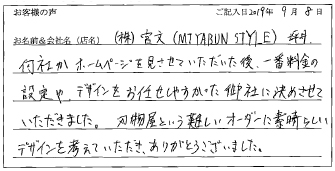 お客様の声 ご記入日 2019年 9月 8日
お名前&会社名(店名) (株)宮文(MIYABUN STYLE) 様
何社かホームページを見させていただいた後、一番料金の
設定や、デザインをお任せしやすかった御社に決めさせて
いただきました。刃物屋という難しいオーダーに素晴らしい
デザインを考えていただき、ありがとうございました。